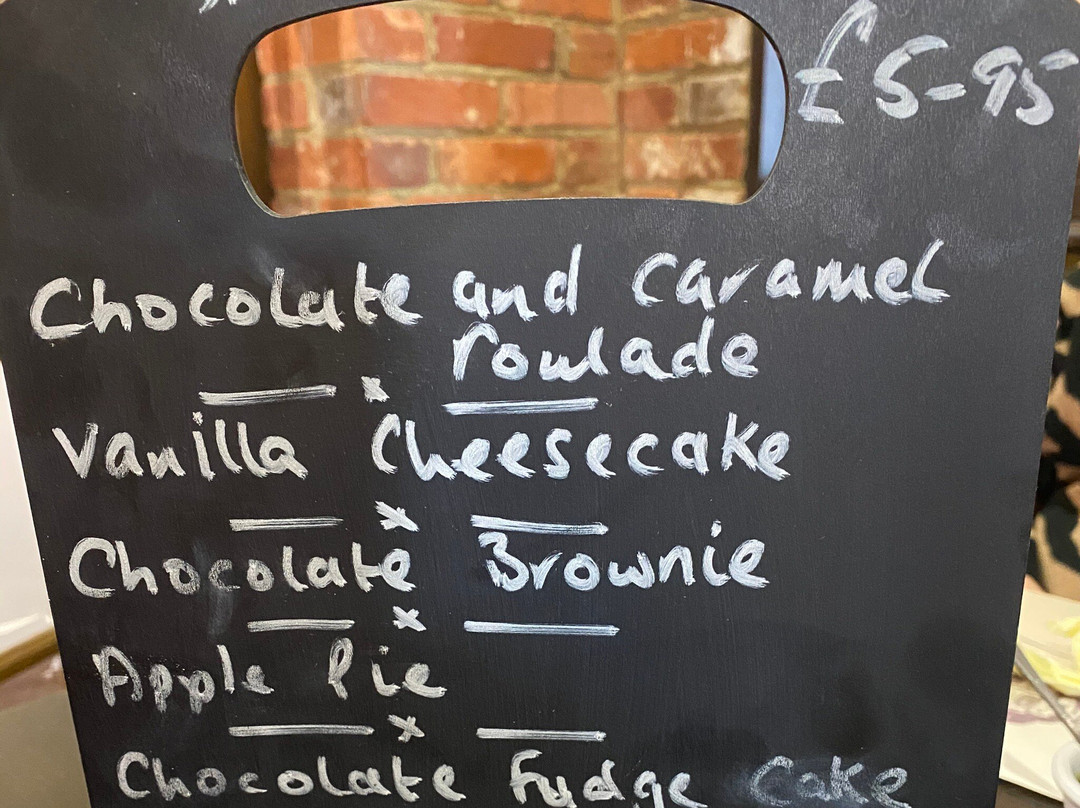 £5-95
Chocolate and Caramel
roulade
x
Vanilla Cheesecake
x
Chocolate Brownie
x
Apple Pie
x
Chocolate Fudge Cake